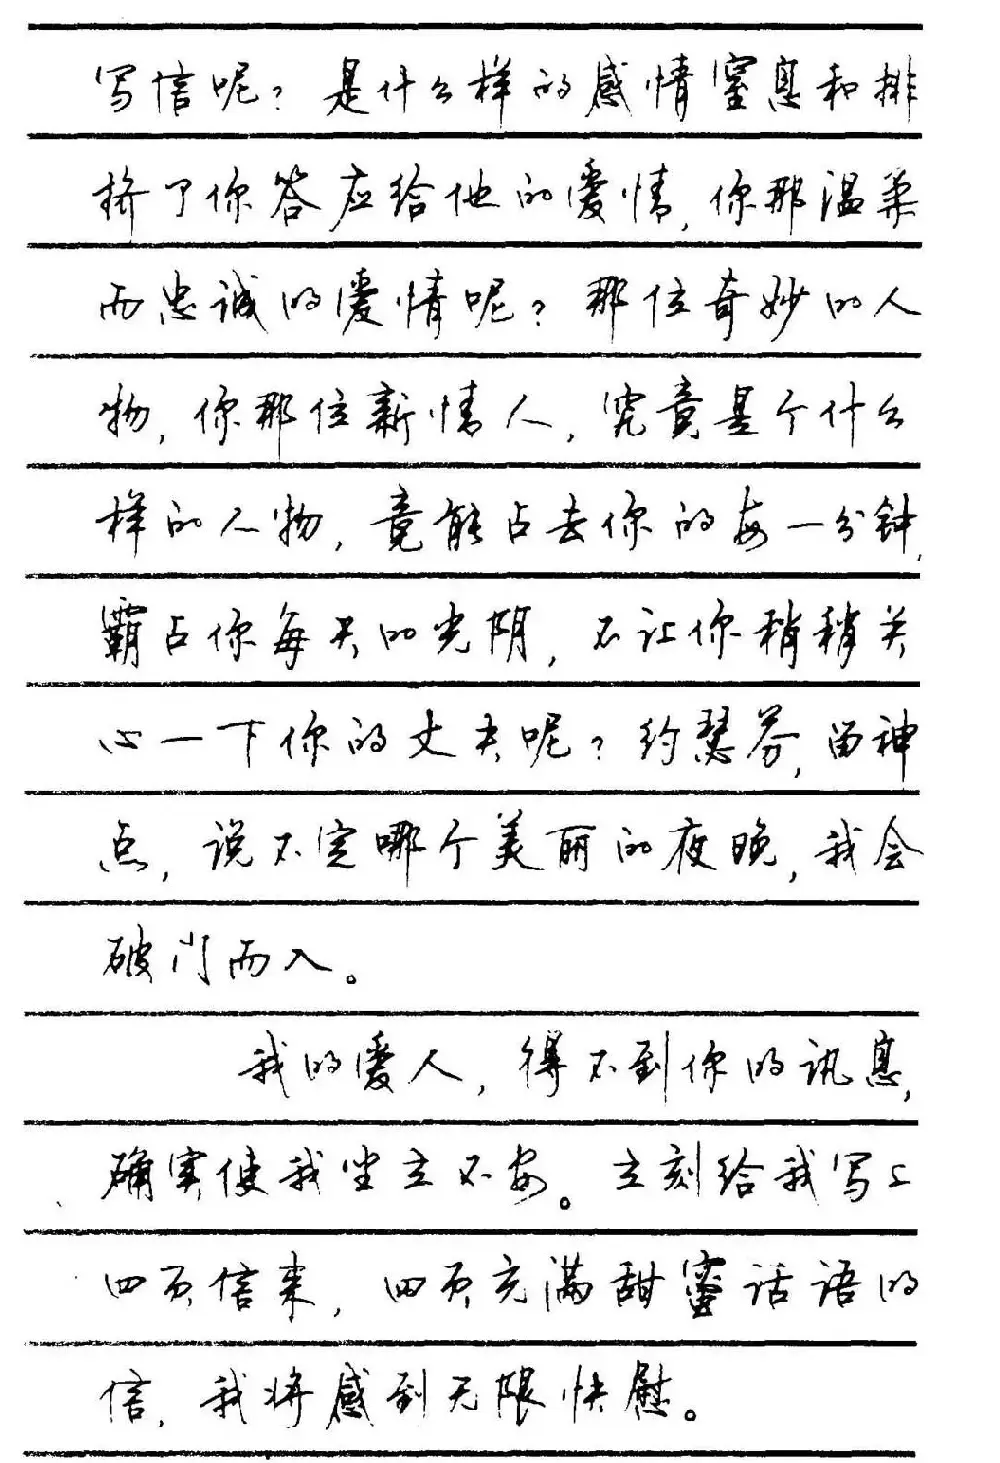 写信呢？是什么样的感情窒息和排
挤了你答应给他的爱情,你那温柔
而忠诚的爱情呢？那位奇妙的人
物,你那位新情人,究竟是个什么
样的人物,竟能占去你的每一分钟,
霸占你每天的光阴,不让你稍稍关
心一下你的丈夫呢？约瑟芬,留神
点,说不定哪个美丽的夜晚,我会
破门而入。
我的爱人,得不到你的讯息,
确实使我坐立不安。立刻给我写上
四页信来,四页充满甜蜜话语的
信,我将感到无限快慰。